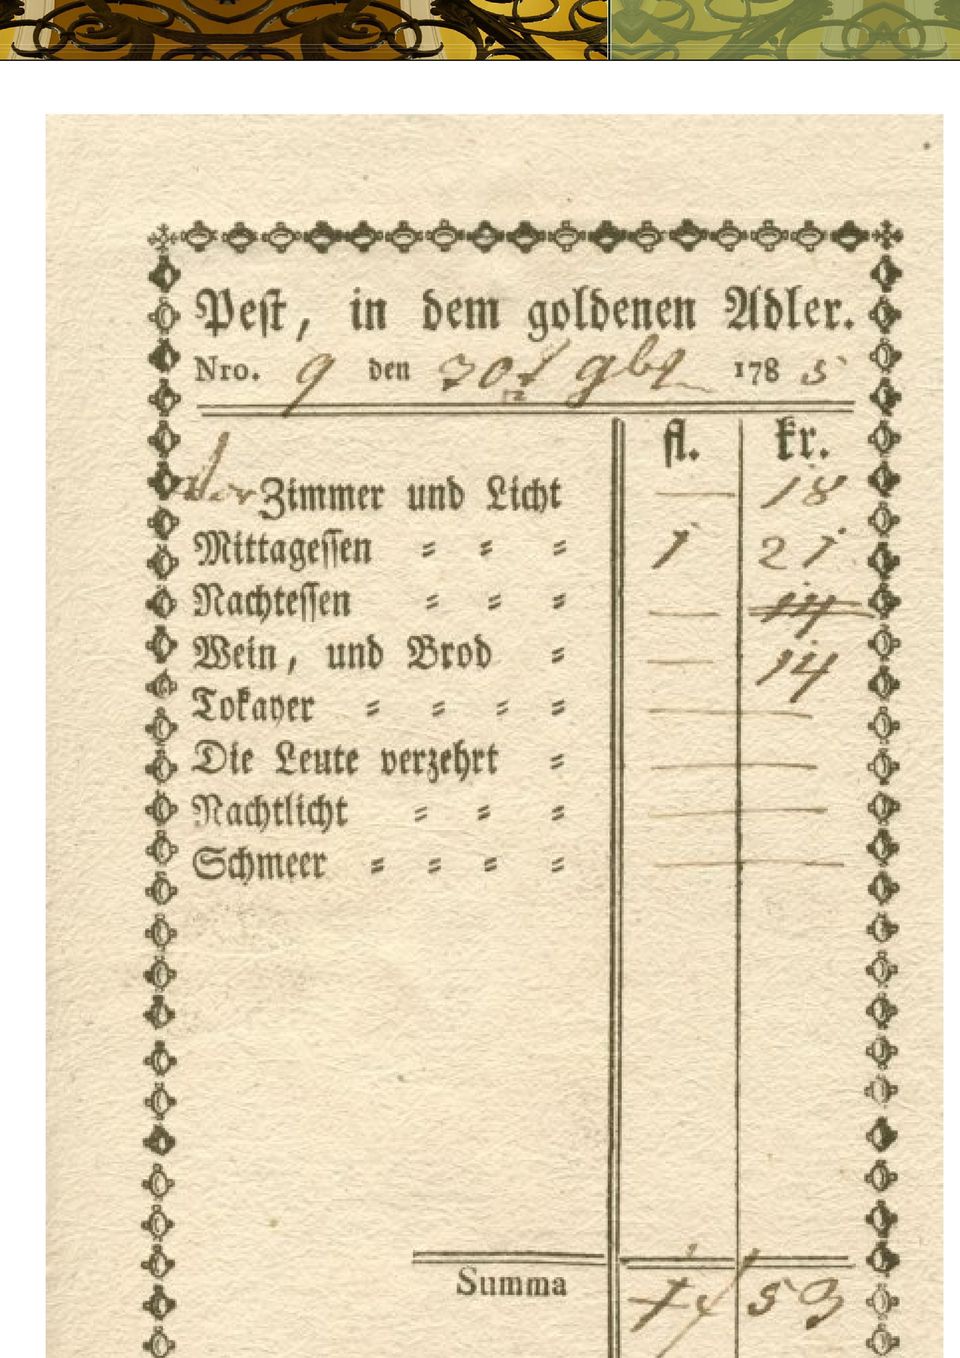 Pest, in dem goldenen Adler.
Nro. 9 den 30t 9br 1785
fl. kr.
Vor Zimmer und Licht — 18
Mittagessen = = = 1 21
Nachtessen = = = — 14
Wein, und Brod = — 14
Tokayer = = = = —
Die Leute verzehrt = —
Nachtlicht = = = —
Schmeer = = = = —
Summa 1 53